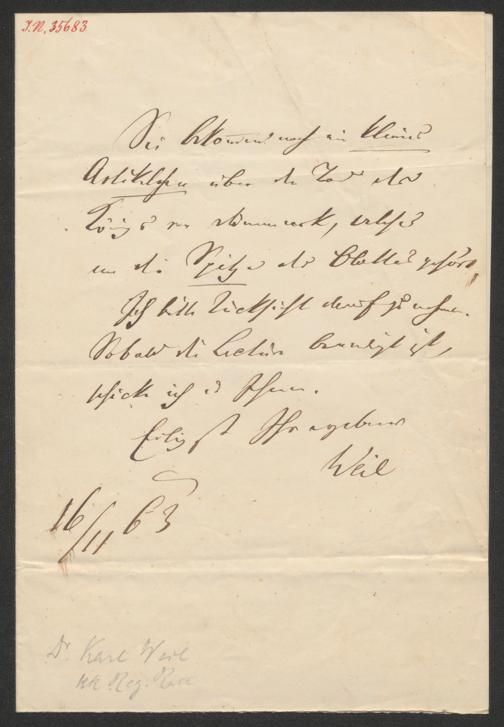 I.N. 35683
Sie bekommen noch ein kleines
Artikelchen über den Tod des
Königs von Dänemark, welches
an die Spitze des Blattes gehört.
Ich bitte Rücksicht darauf zu nehmen.
Sobald die Lectüre beendigt ist,
schicke ich es Ihnen.
Eiligst Ihr ergebener
Weil
16/11 63
Dr. Karl Weil
kk. Reg. Rath